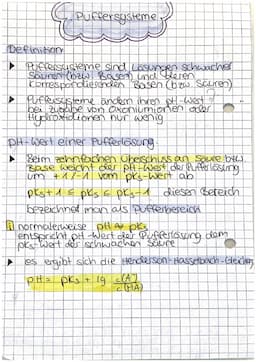 Puffersysteme
Definition
▸ Puffersysteme sind Lösungen schwacher
Säuren (bzw. Basen) und deren
korrespondierenden Basen (bzw. Säuren)
▸ Puffersysteme ändern ihren pH-Wert
bei Zugabe von Oxoniumionen oder
Hydroxidionen nur wenig
pH-Wert einer Pufferlösung
▸ Beim zehnfachen Überschuss an Säure bzw.
Base weicht der pH-Wert der Pufferlösung
um +1/-1 vom pKs-Wert ab
pKs+1 ≤ pKs ≤ pKs-1 diesen Bereich
bezeichnet man als Pufferbereich
normalerweise pH ≈ pKs
entspricht pH-Wert der Pufferlösung dem
pKs-Wert der schwachen Säure
▸ es ergibt sich die Henderson-Hasselbach-Gleichung
pH = pKs + lg c(A⁻)
c(HA)